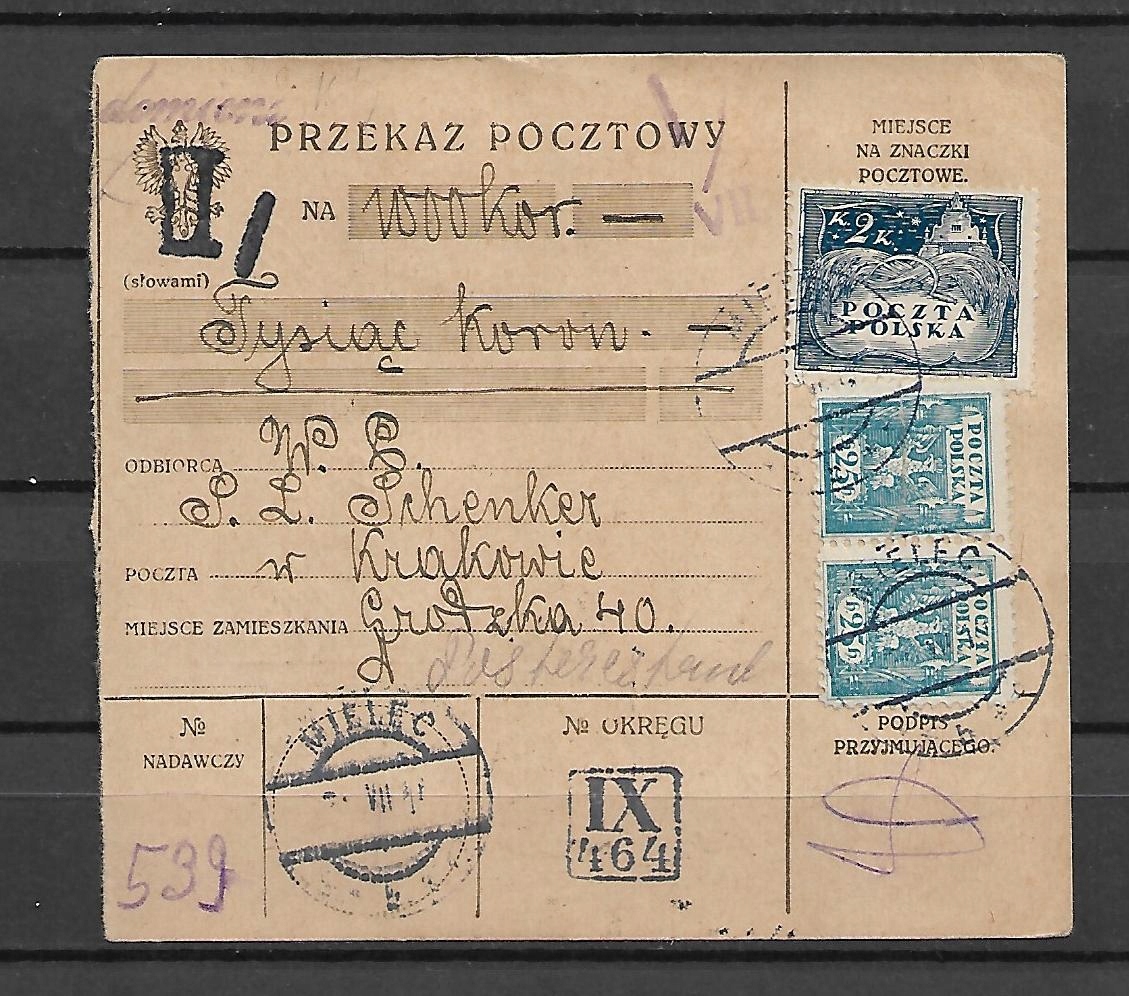 PRZEKAZ POCZTOWY
NA 1000 kor. —
VII
(słowami)
Tysiąc koron. —
ODBIORCA W. P.
S. L. Schenker
POCZTA w Krakowie
MIEJSCE ZAMIESZKANIA Grodzka 40.
MIEJSCE
NA ZNACZKI
POCZTOWE.
K. 2 K.
POCZTA
POLSKA
POCZTA
POLSKA
25
POCZTA
POLSKA
25
MIELEC
MIELEC
№
NADAWCZY
539
MIELEC
VII
4
№ OKRĘGU
IX
464
PODPIS
PRZYJMUJĄCEGO.